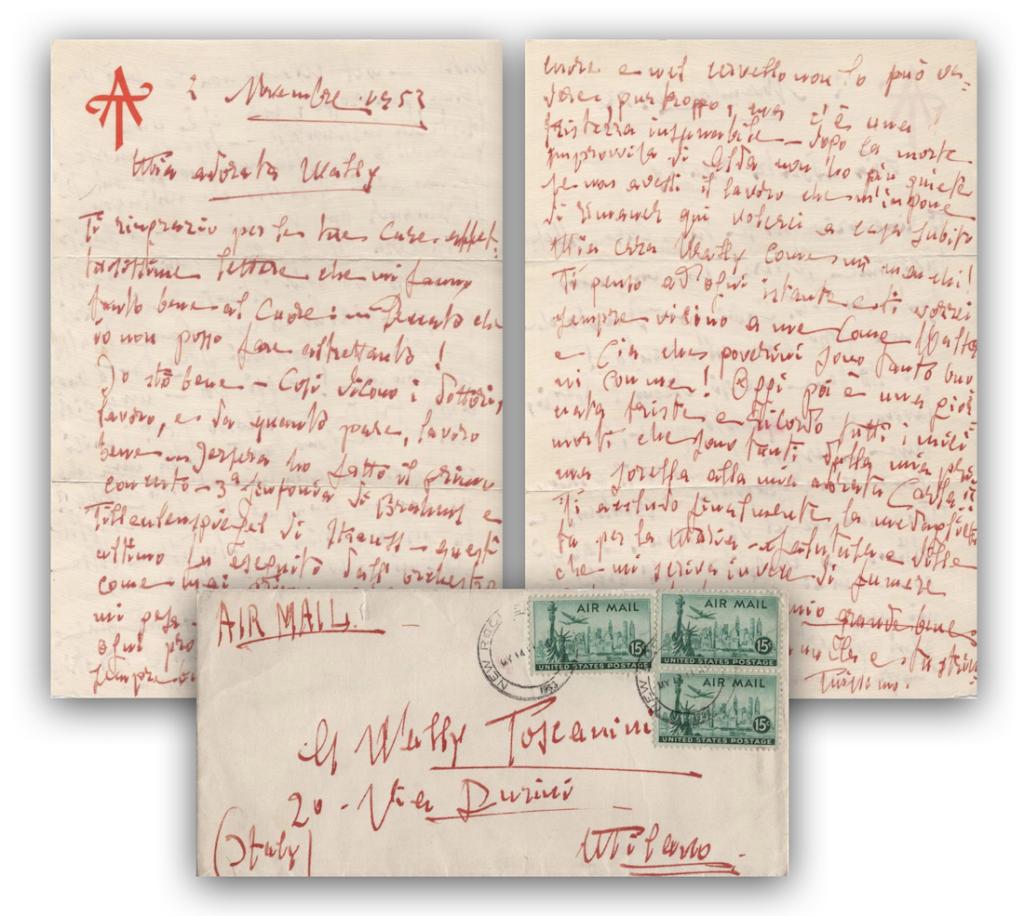 2 Novembre 1953
Mia adorata Wally
Ti ringrazio per le tue care affet-
tuosissime lettere che mi fanno
tanto bene al cuore: mi che
io non posso fare altrettanto!
Io stò bene – Così dicono i dottori,
lavoro, e da quanto pare, lavoro
bene – Jersera ho fatto il primo
concerto – 3ª Sinfonia di Brahms e
Till Eulenspiegel di Strauss – quest'
ultimo fu eseguito dall' orchestra
come mai
mi
ogni pro
sempre
cuore e nel cervello non lo può ve-
dere, purtroppo, ma c'è una
tristezza – dopo la morte
improvvisa di non ho più quiete
se non avessi il lavoro che m'impone
di rimaner qui volerei a casa subito
Mia cara Wally come mi manchi!
Ti penso ad ogni istante e ti vorrei
sempre vicino a me come Walter
e Cia che poverini sono tanto buo
ni con me! Oggi poi è una gior
nata triste e ricordo tutti i miei
morti che sono tanti dalla mia
ma sorella alla mia adorata Carla
Ti accludo finalmente la
ta per la e
che mi scriva invece di fumare
grande bene
e
AIR MAIL
Wally Toscanini
20 – Via Durini
Milano
(Italy)
AIR MAIL
15¢
UNITED STATES POSTAGE
AIR MAIL
15¢
UNITED STATES POSTAGE
AIR MAIL
15¢
UNITED STATES POSTAGE
NEW ROC
1953
NEW